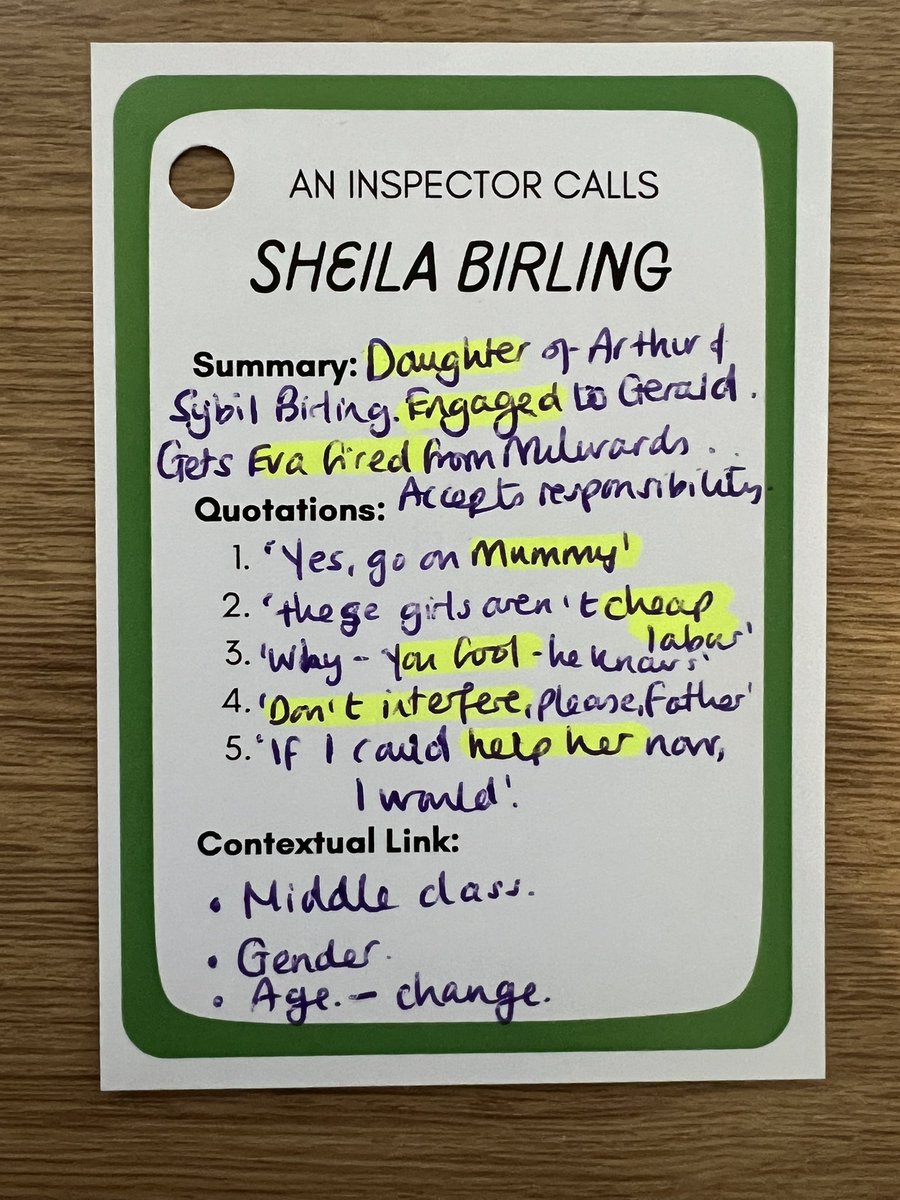 AN INSPECTOR CALLS
SHEILA BIRLING
Summary: Daughter of Arthur &
Sybil Birling. Engaged to Gerald.
Gets Eva fired from Milwards.
Accepts responsibility.
Quotations:
1. 'Yes, go on Mummy'
2. 'these girls aren't cheap
labour'
3. 'Why - you fool - he knows'
4. 'Don't interfere, please, Father'
5. 'If I could help her now,
I would'.
Contextual Link:
• Middle class.
• Gender.
• Age. - change.